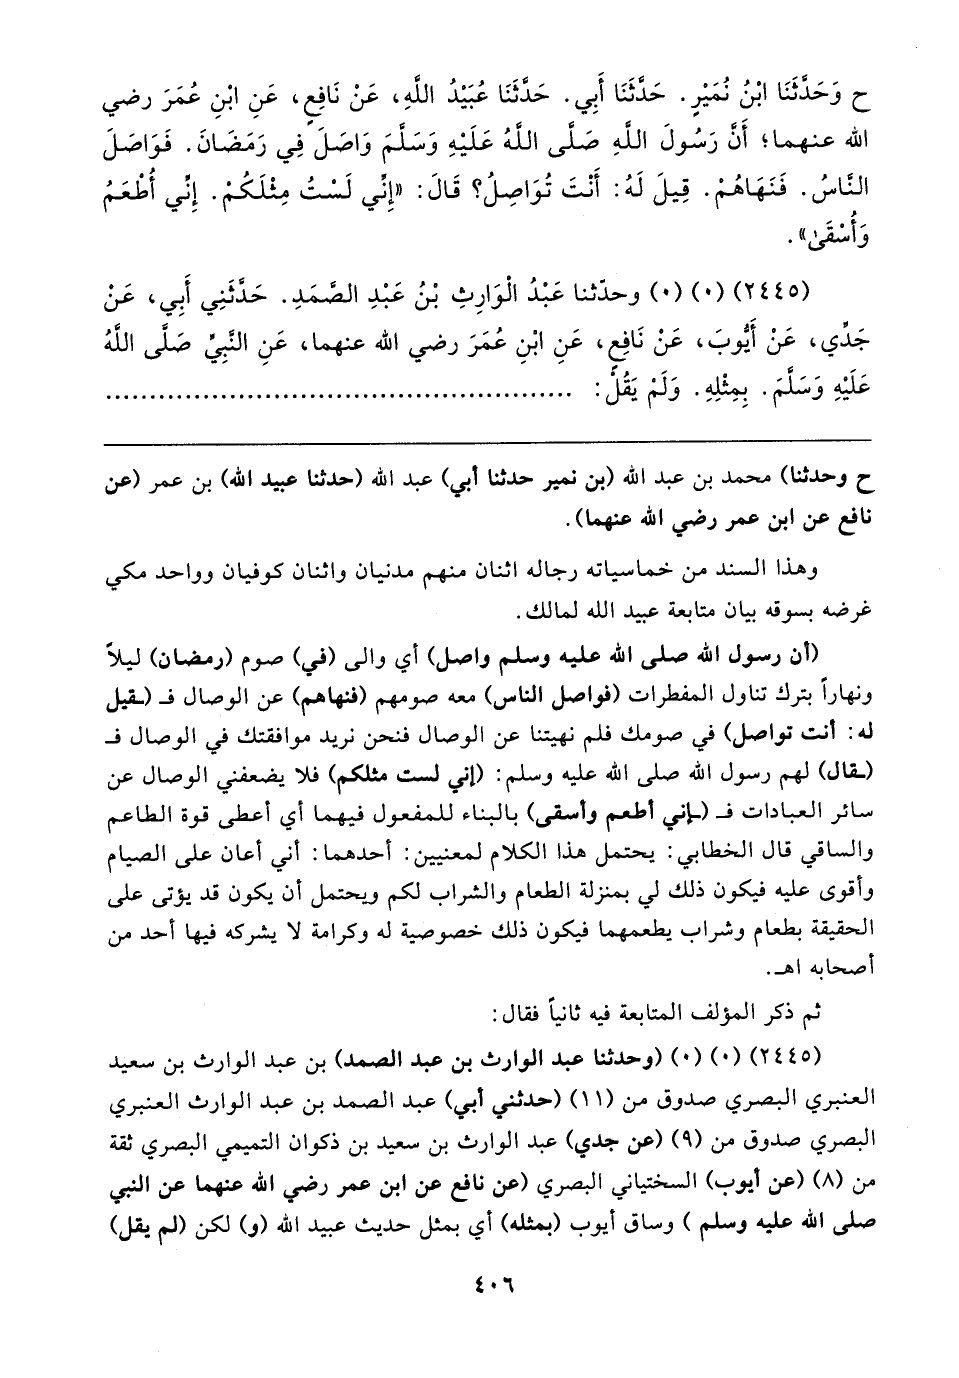 ح وَحَدَّثَنَا ابْنُ نُمَيْرٍ. حَدَّثَنَا أَبِي. حَدَّثَنَا عُبَيْدُ اللَّهِ، عَنْ نَافِعٍ، عَنِ ابْنِ عُمَرَ رضي
الله عنهما؛ أَنَّ رَسُولَ اللَّهِ صَلَّى اللَّهُ عَلَيْهِ وَسَلَّمَ وَاصَلَ فِي رَمَضَانَ. فَوَاصَلَ
النَّاسُ. فَنَهَاهُمْ. قِيلَ لَهُ: أَنْتَ تُوَاصِلُ؟ قَالَ: «إِنِّي لَسْتُ مِثْلَكُمْ. إِنِّي أُطْعَمُ
وَأُسْقَىٰ».
(٢٤٤٥) (٠) (٠) وحدّثنا عَبْدُ الْوَارِثِ بْنُ عَبْدِ الصَّمَدِ. حَدَّثَنِي أَبِي، عَنْ
جَدِّي، عَنْ أَيُّوبَ، عَنْ نَافِعٍ، عَنِ ابْنِ عُمَرَ رضي الله عنهما، عَنِ النَّبِيِّ صَلَّى اللَّهُ
عَلَيْهِ وَسَلَّمَ. بِمِثْلِهِ. وَلَمْ يَقُلْ: ....................................................
ح وحدثنا) محمد بن عبد الله (بن نمير حدثنا أبي) عبد الله (حدثنا عبيد الله) بن عمر (عن
نافع عن ابن عمر رضي الله عنهما).
وهذا السند من خماسياته رجاله اثنان منهم مدنيان واثنان كوفيان وواحد مكي
غرضه بسوقه بيان متابعة عبيد الله لمالك.
(أن رسول الله صلى الله عليه وسلم واصل) أي والى (في) صوم (رمضان) ليلاً
ونهاراً بترك تناول المفطرات (فواصل الناس) معه صومهم (فنهاهم) عن الوصال فـ (ـقيل
له: أنت تواصل) في صومك فلم نهيتنا عن الوصال فنحن نريد موافقتك في الوصال فـ
(ـقال) لهم رسول الله صلى الله عليه وسلم: (إني لست مثلكم) فلا يضعفني الوصال عن
سائر العبادات فـ (ـإني أطعم وأسقى) بالبناء للمفعول فيهما أي أعطى قوة الطاعم
والساقي قال الخطابي: يحتمل هذا الكلام لمعنيين: أحدهما: أني أعان على الصيام
وأقوى عليه فيكون ذلك لي بمنزلة الطعام والشراب لكم ويحتمل أن يكون قد يؤتى على
الحقيقة بطعام وشراب يطعمهما فيكون ذلك خصوصية له وكرامة لا يشركه فيها أحد من
أصحابه اهـ.
ثم ذكر المؤلف المتابعة فيه ثانياً فقال:
(٢٤٤٥) (٠) (٠) (وحدثنا عبد الوارث بن عبد الصمد) بن عبد الوارث بن سعيد
العنبري البصري صدوق من (١١) (حدثني أبي) عبد الصمد بن عبد الوارث العنبري
البصري صدوق من (٩) (عن جدي) عبد الوارث بن سعيد بن ذكوان التميمي البصري ثقة
من (٨) (عن أيوب) السختياني البصري (عن نافع عن ابن عمر رضي الله عنهما عن النبي
صلى الله عليه وسلم ) وساق أيوب (بمثله) أي بمثل حديث عبيد الله (و) لكن (لم يقل)
٤٠٦